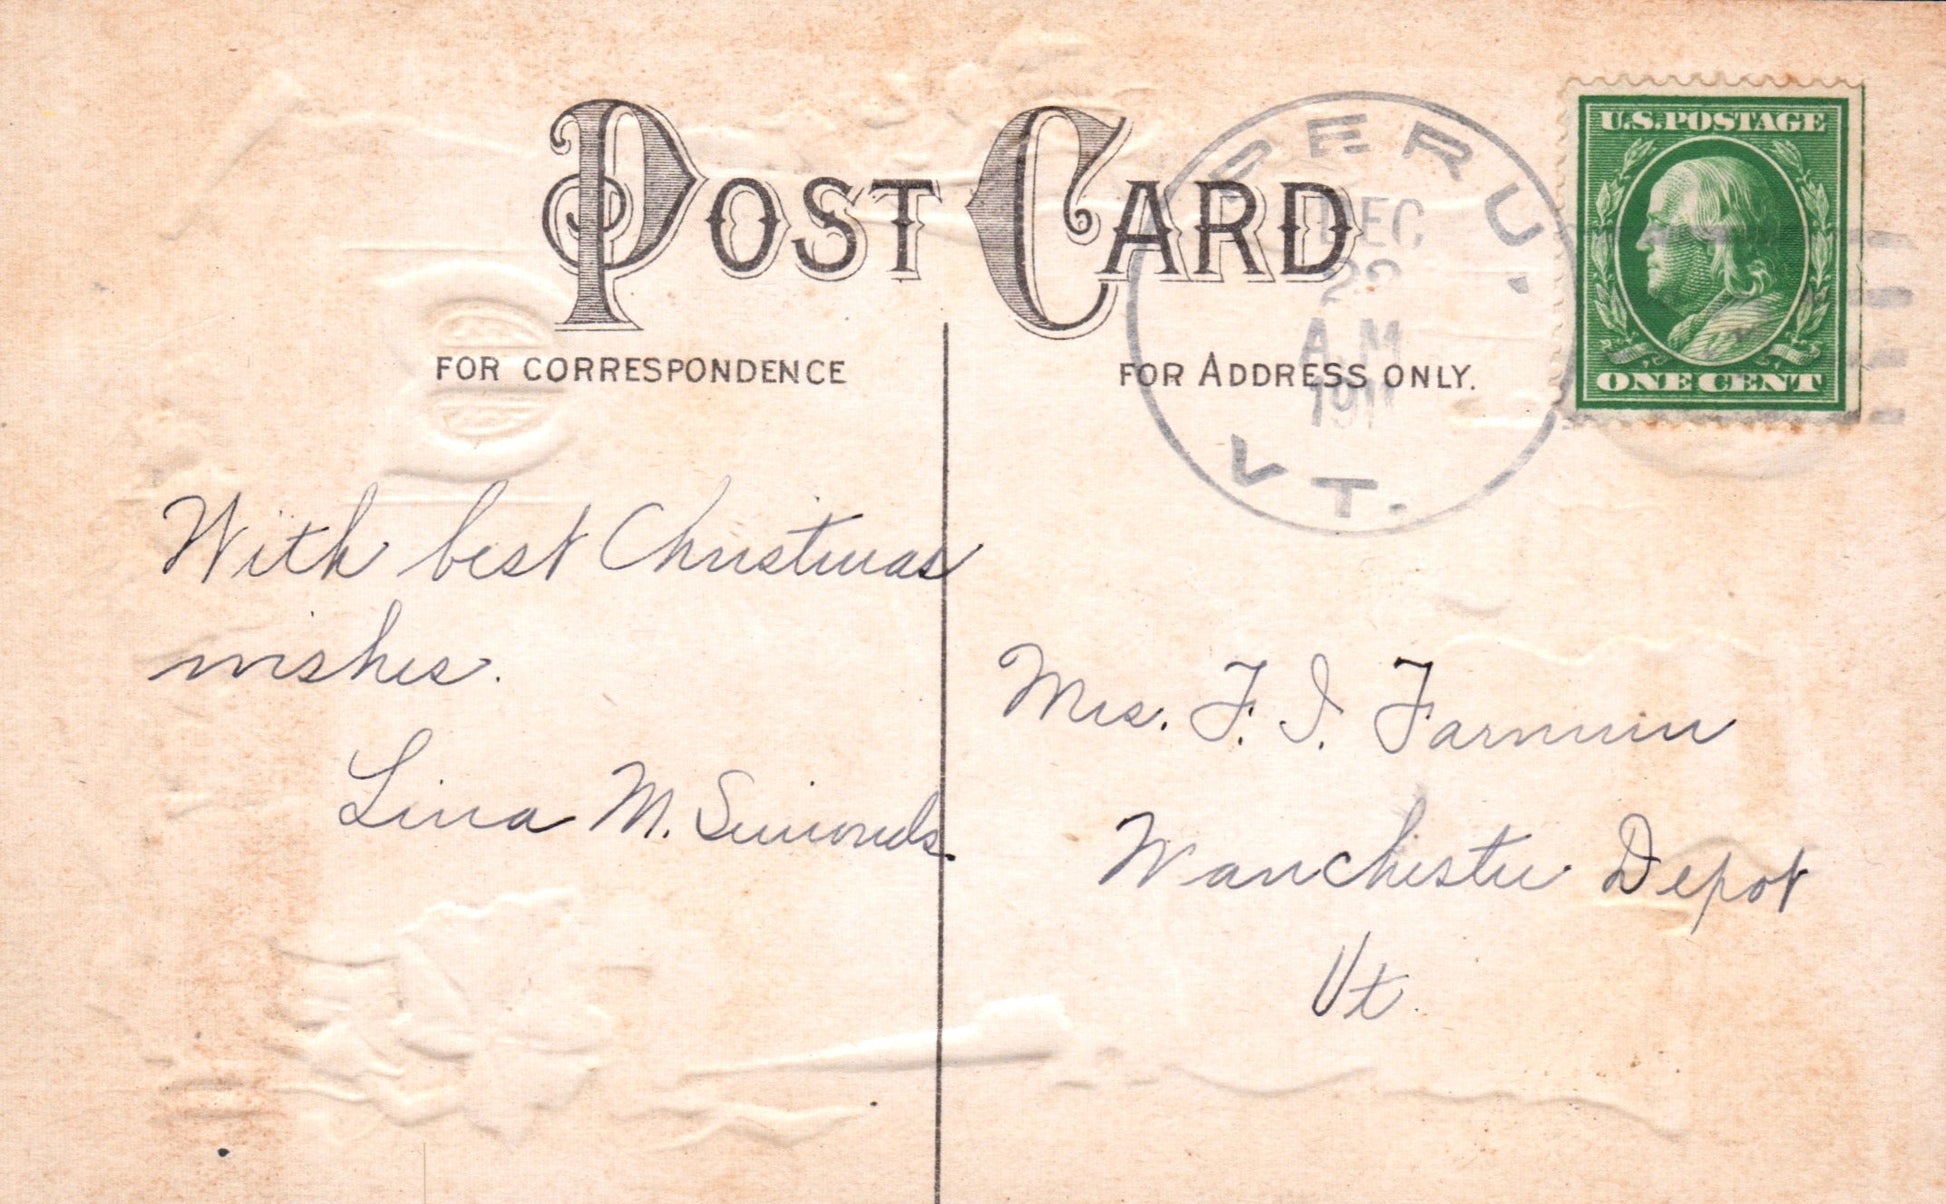 POST CARD
FOR CORRESPONDENCE
FOR ADDRESS ONLY.
PERU.
DEC
22
A.M.
1911
VT.
U.S. POSTAGE
ONE CENT
With best Christmas
wishes.
Lina M. Simonds.
Mrs. F. I. Farnum
Manchester Depot
Vt.